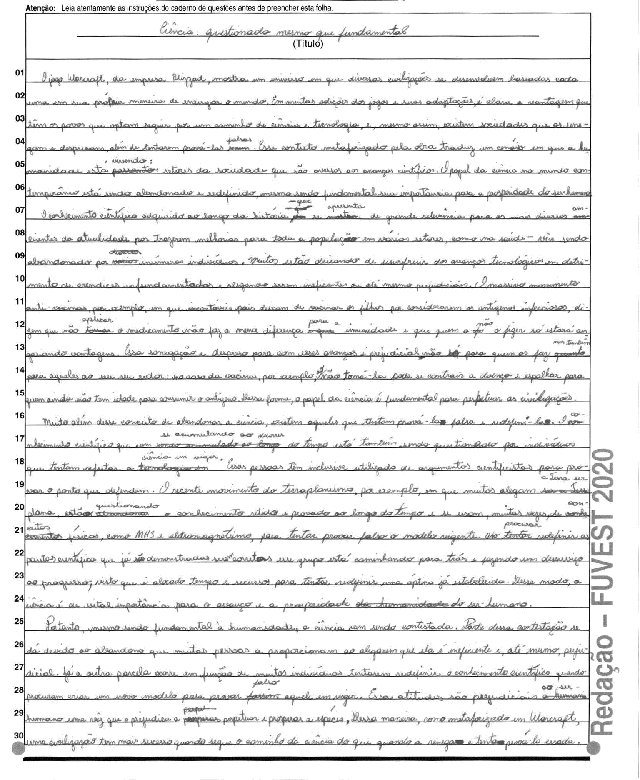 Atenção: Leia atentamente as instruções do caderno de questões antes de preencher esta folha.
Ciência: questionada mesmo que fundamental
(Título)
01 O jogo Warcraft, da empresa Blizzard, mostra um universo em que diversas civilizações se desenvolvem baseadas cada
02 uma em sua própria maneira de enxergar o mundo. Em muitas edições dos jogos e suas adaptações, é clara a vantagem que
03 têm os povos que optam seguir por um caminho de ciência e tecnologia e, mesmo assim, existem sociedades que as rene-
04 gam e desprezam, além de tentarem prová-las falsas. Esse contexto metaforizado pela obra traduz um cenário em que a hu-
05 manidade está vivendo: setores da sociedade que são avessos ao avanço científico. O papel da ciência no mundo con-
06 temporâneo está sendo abandonado e redefinido, mesmo sendo fundamental sua importância para a prosperidade do ser humano
07 O conhecimento científico adquirido ao longo da história, que se apresenta de grande relevância para os mais diversos am-
08 bientes da atualidade por trazerem melhorias para toda a população em vários setores, como na saúde - vem sendo
09 abandonado por inúmeros indivíduos. Muitos estão deixando de usufruir dos avanços tecnológicos em detri-
10 mento de crendices infundamentadas e alegando serem ineficientes ou até mesmo prejudiciais. O massivo movimento
11 anti-vacinas, por exemplo, em que inúmeros pais deixam de vacinar os filhos por considerarem os antígenos inferiores, di-
12 zem que não aplicar o medicamento não faz a menor diferença para a imunidade e que quem não o fizer só estará an-
13 gariando vantagens. Essa renegação e desprezo para com esses avanços é prejudicial não só para quem os faz mas também
14 para aqueles ao seu redor: no caso da vacina, por exemplo, não tomá-la pode se contrair a doença e espalhar para
15 quem ainda não tem idade para consumir o antígeno. Dessa forma, o papel da ciência é fundamental para perpetuar as civilizações.
16 Muito além desse conceito de abandonar a ciência, existem aqueles que tentam prová-la falsa e redefini-la. O co-
17 nhecimento científico que vem se acumulando ao decorrer do tempo está também sendo questionado por indivíduos
18 que tentam rejeitar a ciência em vigor. Essas pessoas têm inclusive utilizado de argumentos cientificistas para pro-
19 var o ponto que defendem. O recente movimento do terraplanismo, por exemplo, em que muitos alegam a Terra ser
20 plana questionando o conhecimento sólido e provado ao longo do tempo e se usam, muitas vezes, de
21 conceitos físicos, como MHS e eletromagnetismo, para tentar provar falso o modelo vigente. Ao procurar redefinir as
22 pautas científicas que já são demonstradas serem corretas esse grupo está caminhando para trás e fazendo um desserviço
23 ao progresso, visto que é alocado tempo e recursos para tentar redefinir uma óptica já estabelecida. Desse modo, a
24 ciência é de vital importância para o avanço e a prosperidade do ser humano.
25 Portanto, mesmo sendo fundamental à humanidade, a ciência vem sendo contestada. Parte dessa contestação se
26 dá devido ao abandono que muitas pessoas a proporcionam ao alegarem que ela é ineficiente e, até mesmo, preju-
27 dicial. Já a outra parcela ocorre em função de muitos indivíduos tentarem redefinir o conhecimento científico quando
28 procuram criar um novo modelo para provar falso aquele em vigor. Essas atitudes são prejudiciais ao ser
29 humano uma vez que o prejudica a perpetuar e prosperar a espécie. Dessa maneira, como metaforizado em Warcraft,
30 uma civilização tem mais sucesso quando segue o caminho da ciência do que quando a renega e tenta prová-la errada.
Redação – FUVEST 2020